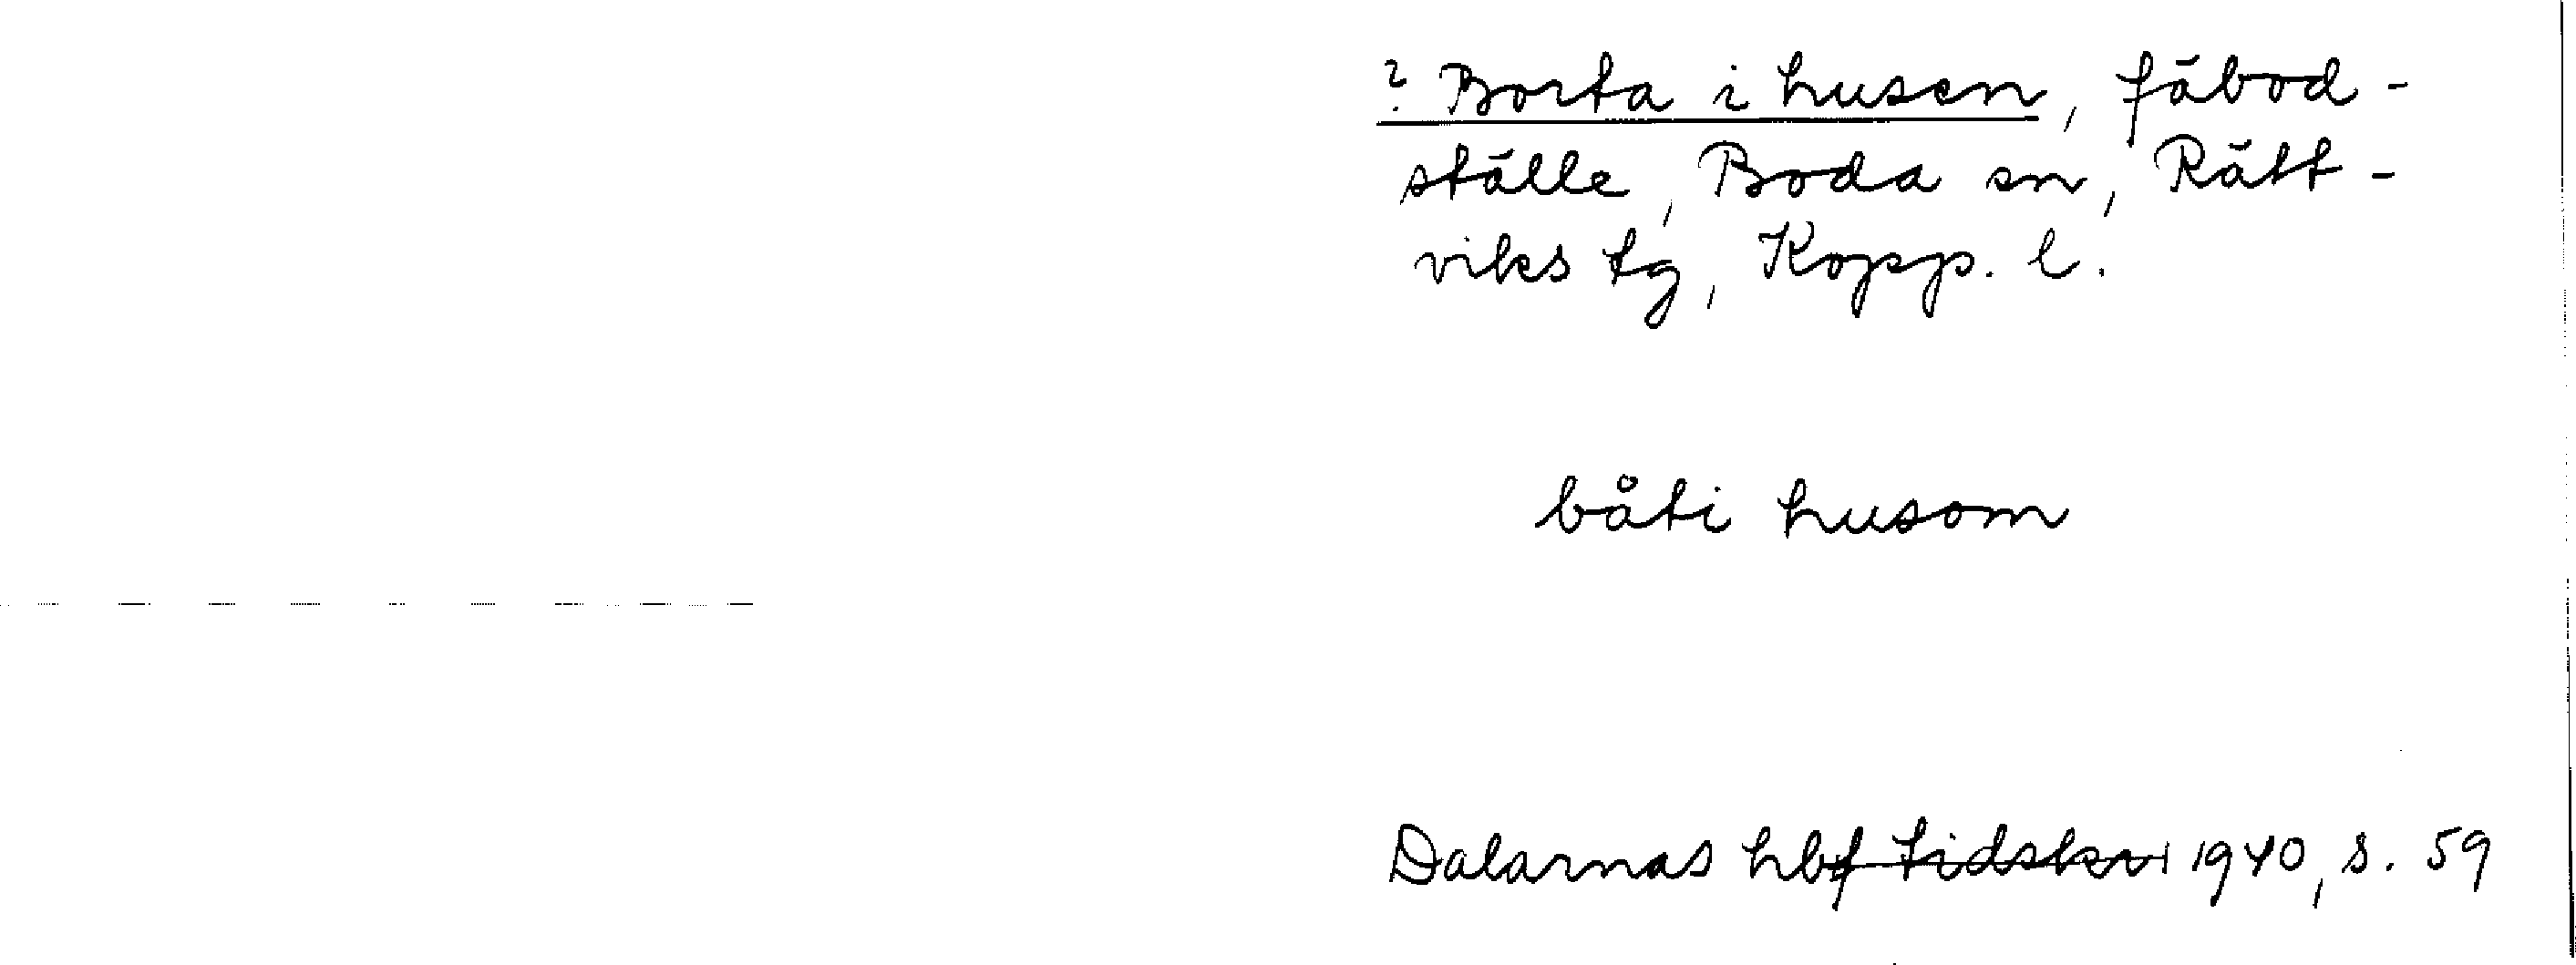 ? Borta i husen, fäbod-
ställe, Boda sn, Rätt-
viks tg, Kopp. l.
båti husom
Dalarnas hbf tidskr 1940, s. 59